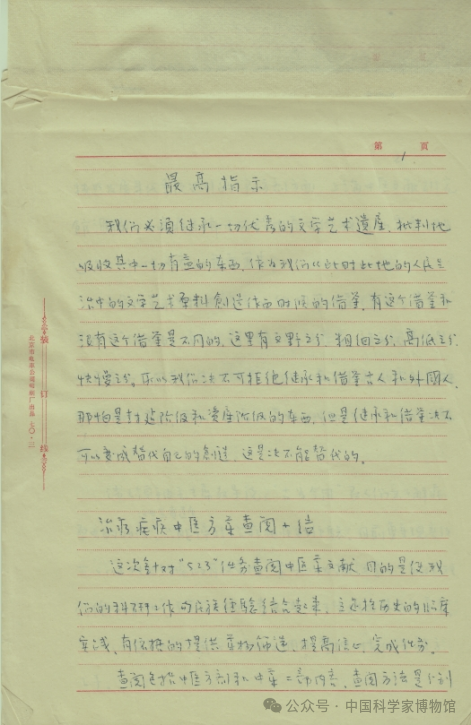 第 1 页
最高指示
我们必须继承一切优秀的文学艺术遗产、批判地
吸收其中一切有益的东西，作为我们从此时此地的人民生
活中的文学艺术原料创造作品时候的借鉴，有这个借鉴和
没有这个借鉴是不同的，这里有文野之分，粗细之分，高低之分
快慢之分。所以我们决不可拒绝继承和借鉴古人和外國人，
那怕是封建阶级和资产阶级的东西，但是继承和借鉴决不
可以变成替代自己的創造，这是决不能替代的。
治疗疟疾中医方药查阅小结
这次针对“523”任务查阅中医药文献目的是使我
们的科研工作与民族经验结合起来，主要按历史的临床
实践，有依据的提供药物筛选，提高信心，完成任务。
查阅包括中医方剂和中药二部内容，查阅方法是分别
装订线
北京市电车公司印刷厂出品 七〇·二
公众号·中国科学家博物馆